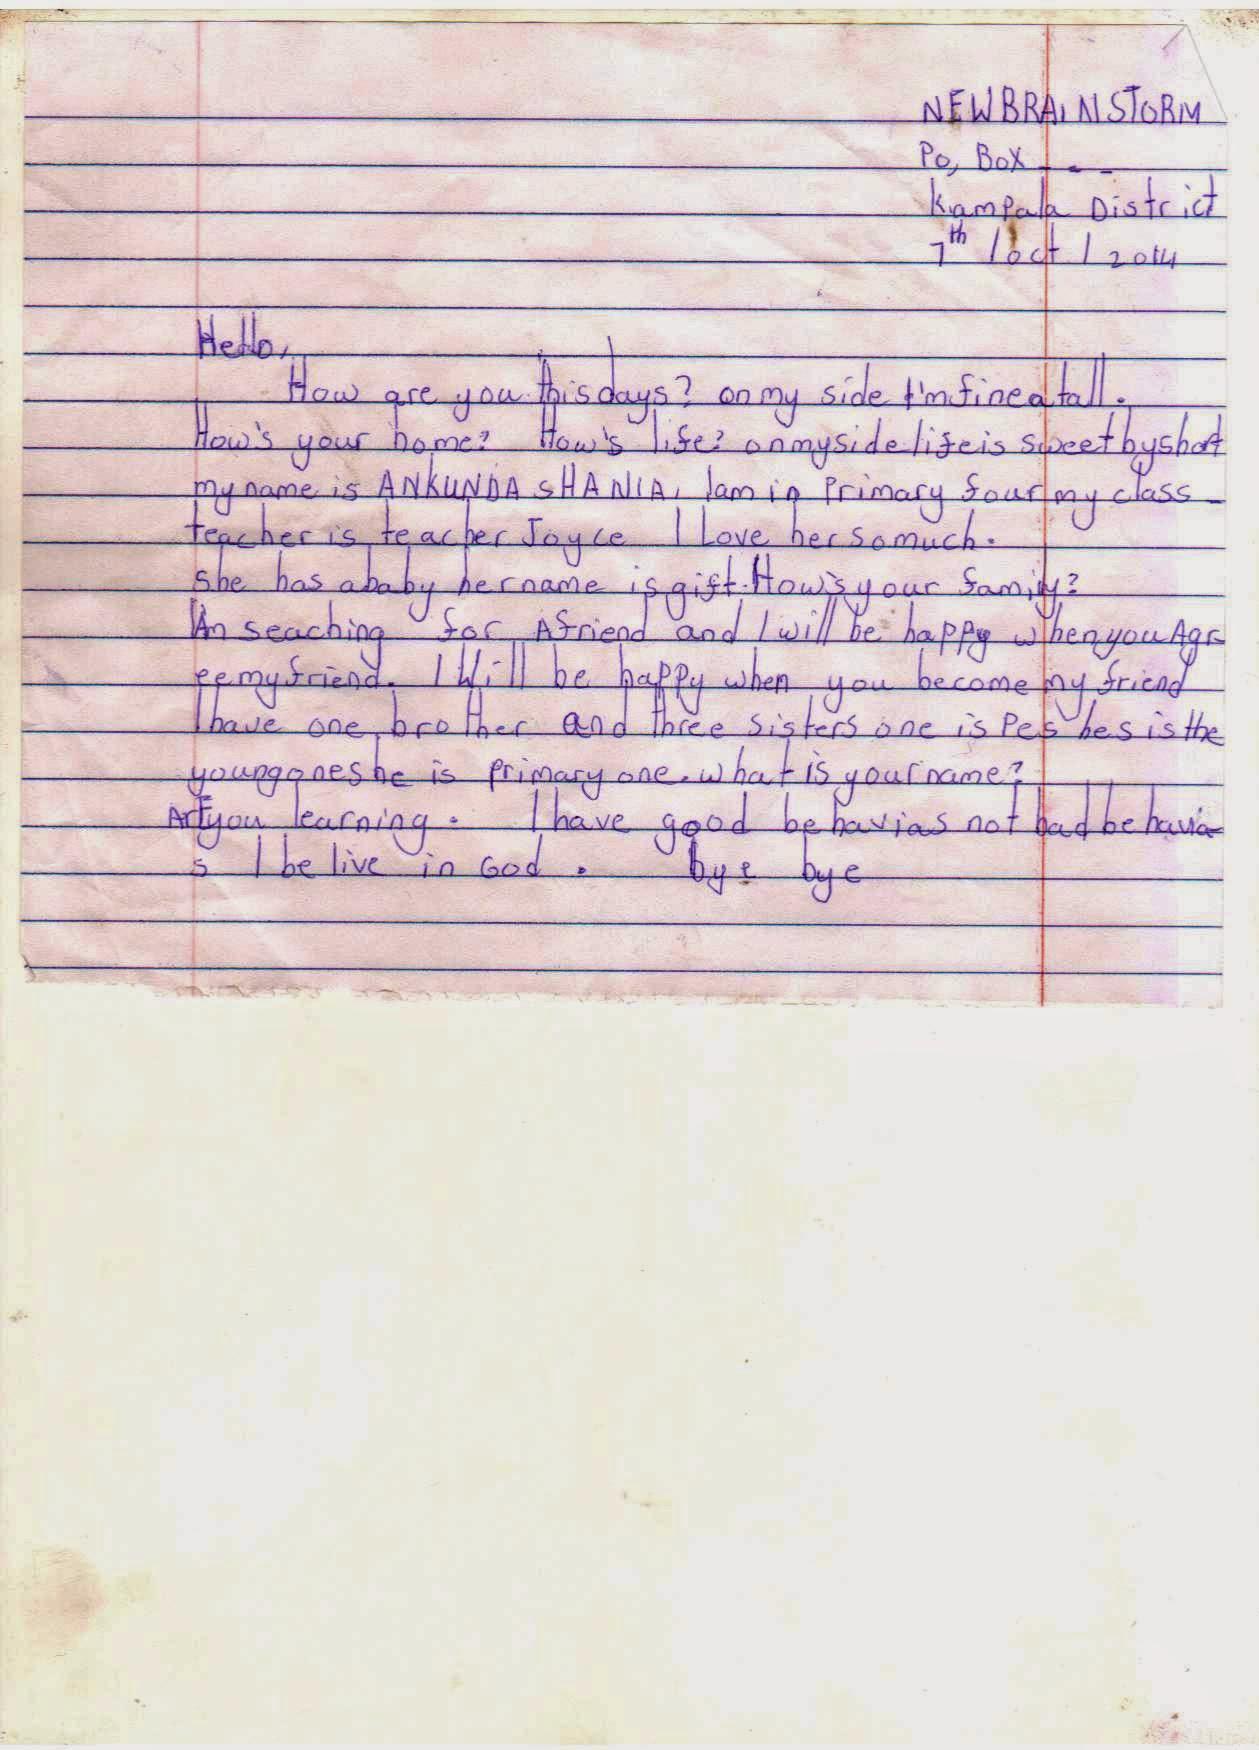 NEWBRAINSTORM
Po, Box - - -
Kampala District
7th / oct / 2014
Hello,
How are you this days? on my side I'm fine atall.
How's your home? How's life? on my side life is sweet by short
my name is ANKUNDA SHANIA, Iam in primary four my class
teacher is teacher Joyce I Love her so much.
she has ababy her name is gift. How's your family?
Am seaching for Afriend and I will be happy when you Agr
ee my friend. I Will be happy when you become my friend
I have one brother and three sisters one is Pes hes is the
young one she is primary one. what is your name?
Are you learning. I have good behavias not bad behavia
s I belive in God. bye bye